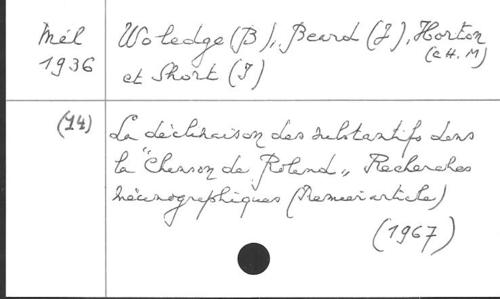 Mél
1936
Woledge (B), Beard (J), Horton
(C H. M)
et Short (I)
(14)
La déclinaison des substantifs dans
la "Chanson de Roland„ Recherches
mécanographiques (Premier article)
(1967)